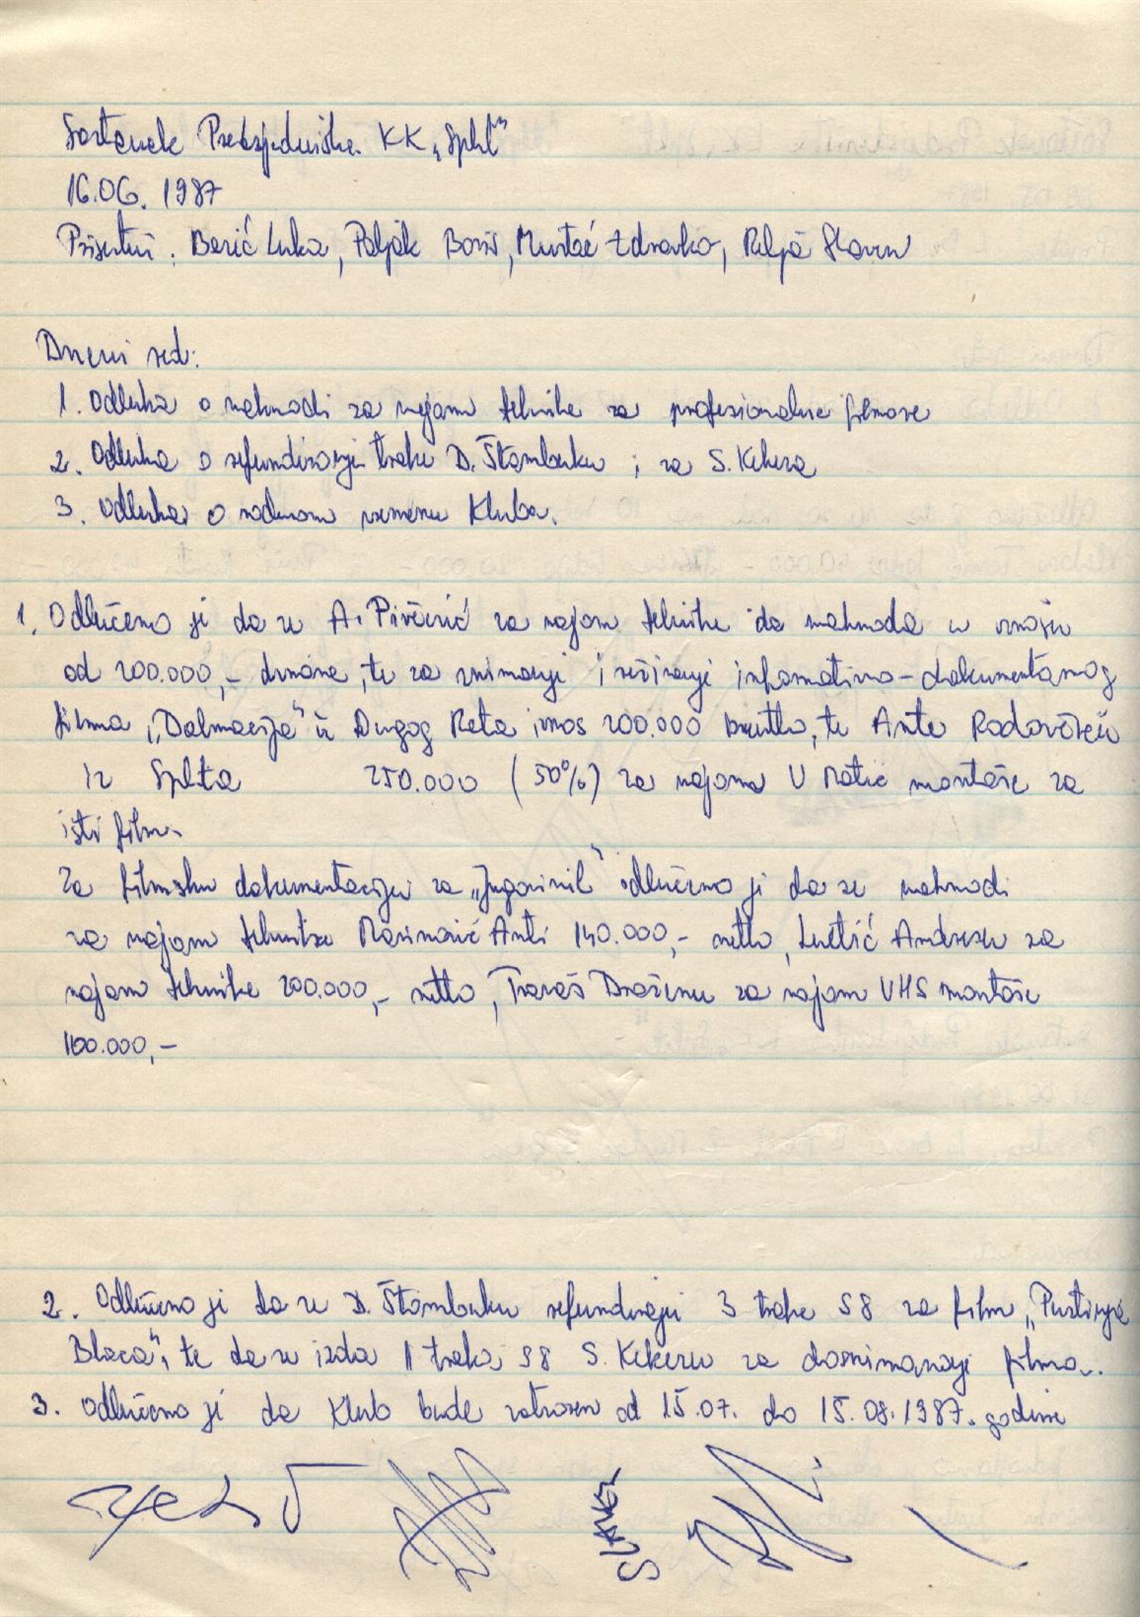 Sastanak Predsjedništva KK „Split"
16.06. 1987
Prisutni: Berić Luka, Poljak Boris, Mustać Zdravko, Relja Slaven
Dnevni red:
1. Odluka o naknadi za najam tehnike za profesionalne filmove
2. Odluka o refundiranju trake D. Štambuku i za S. Kekeza
3. Odluka o radnom vremenu Kluba.
1. Odlučeno je da se A. Pivčević za najam tehnike da naknada u iznosu
od 200.000,- dinara, te za snimanje i režiranje informativno-dokumentarnog
filma „Dalmacija" iz Drugog Rata iznos 200.000 bruttο, te Ante
iz Splita 250.000 (50%) za najam U Matic montaže za
isti film.
Za filmsku dokumentaciju za „Jugovinil" odlučeno je da se naknadi
za najam tehnike Anti 140.000,- netto, Letić Andreju za
najam tehnike 200.000,- netto, Travaš Draženu za najam VHS montaže
100.000,-
2. Odlučeno je da se D. Štambuku refundiraju 3 trake S8 za film „Pustinja
Blaca", te da se izda 1 traka S8 S. Kekezu za dosnimavanje filma.
3. Odlučeno je da Klub bude zatvoren od 15.07. do 15.08.1987. godine
SLAVEN